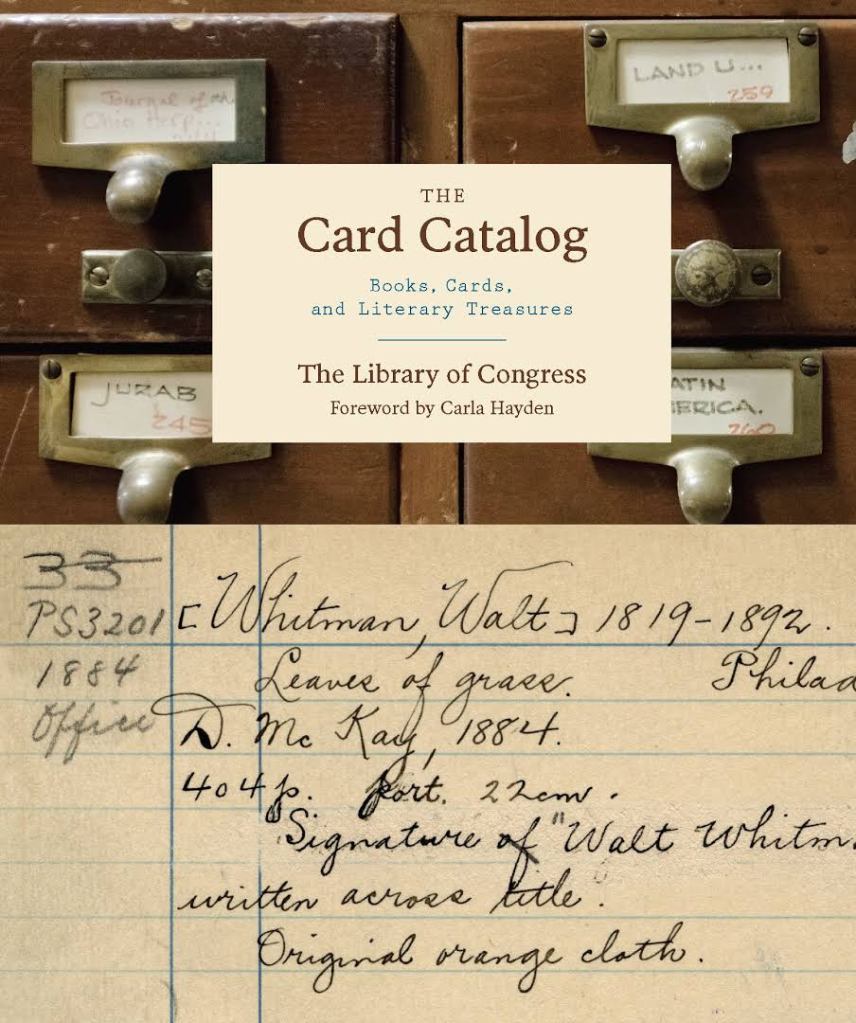 Journal of
Ohio Herp...
LAND U...
259
THE
Card Catalog
Books, Cards,
and Literary Treasures
The Library of Congress
Foreword by Carla Hayden
JURAB
245
ATIN
ERICA.
260
33
PS3201 [Whitman, Walt] 1819-1892.
1884 Leaves of grass. Philad
Office D. Mc Kay, 1884.
404 p. port. 22cm.
"Signature of "Walt Whitm
written across title.
Original orange cloth.